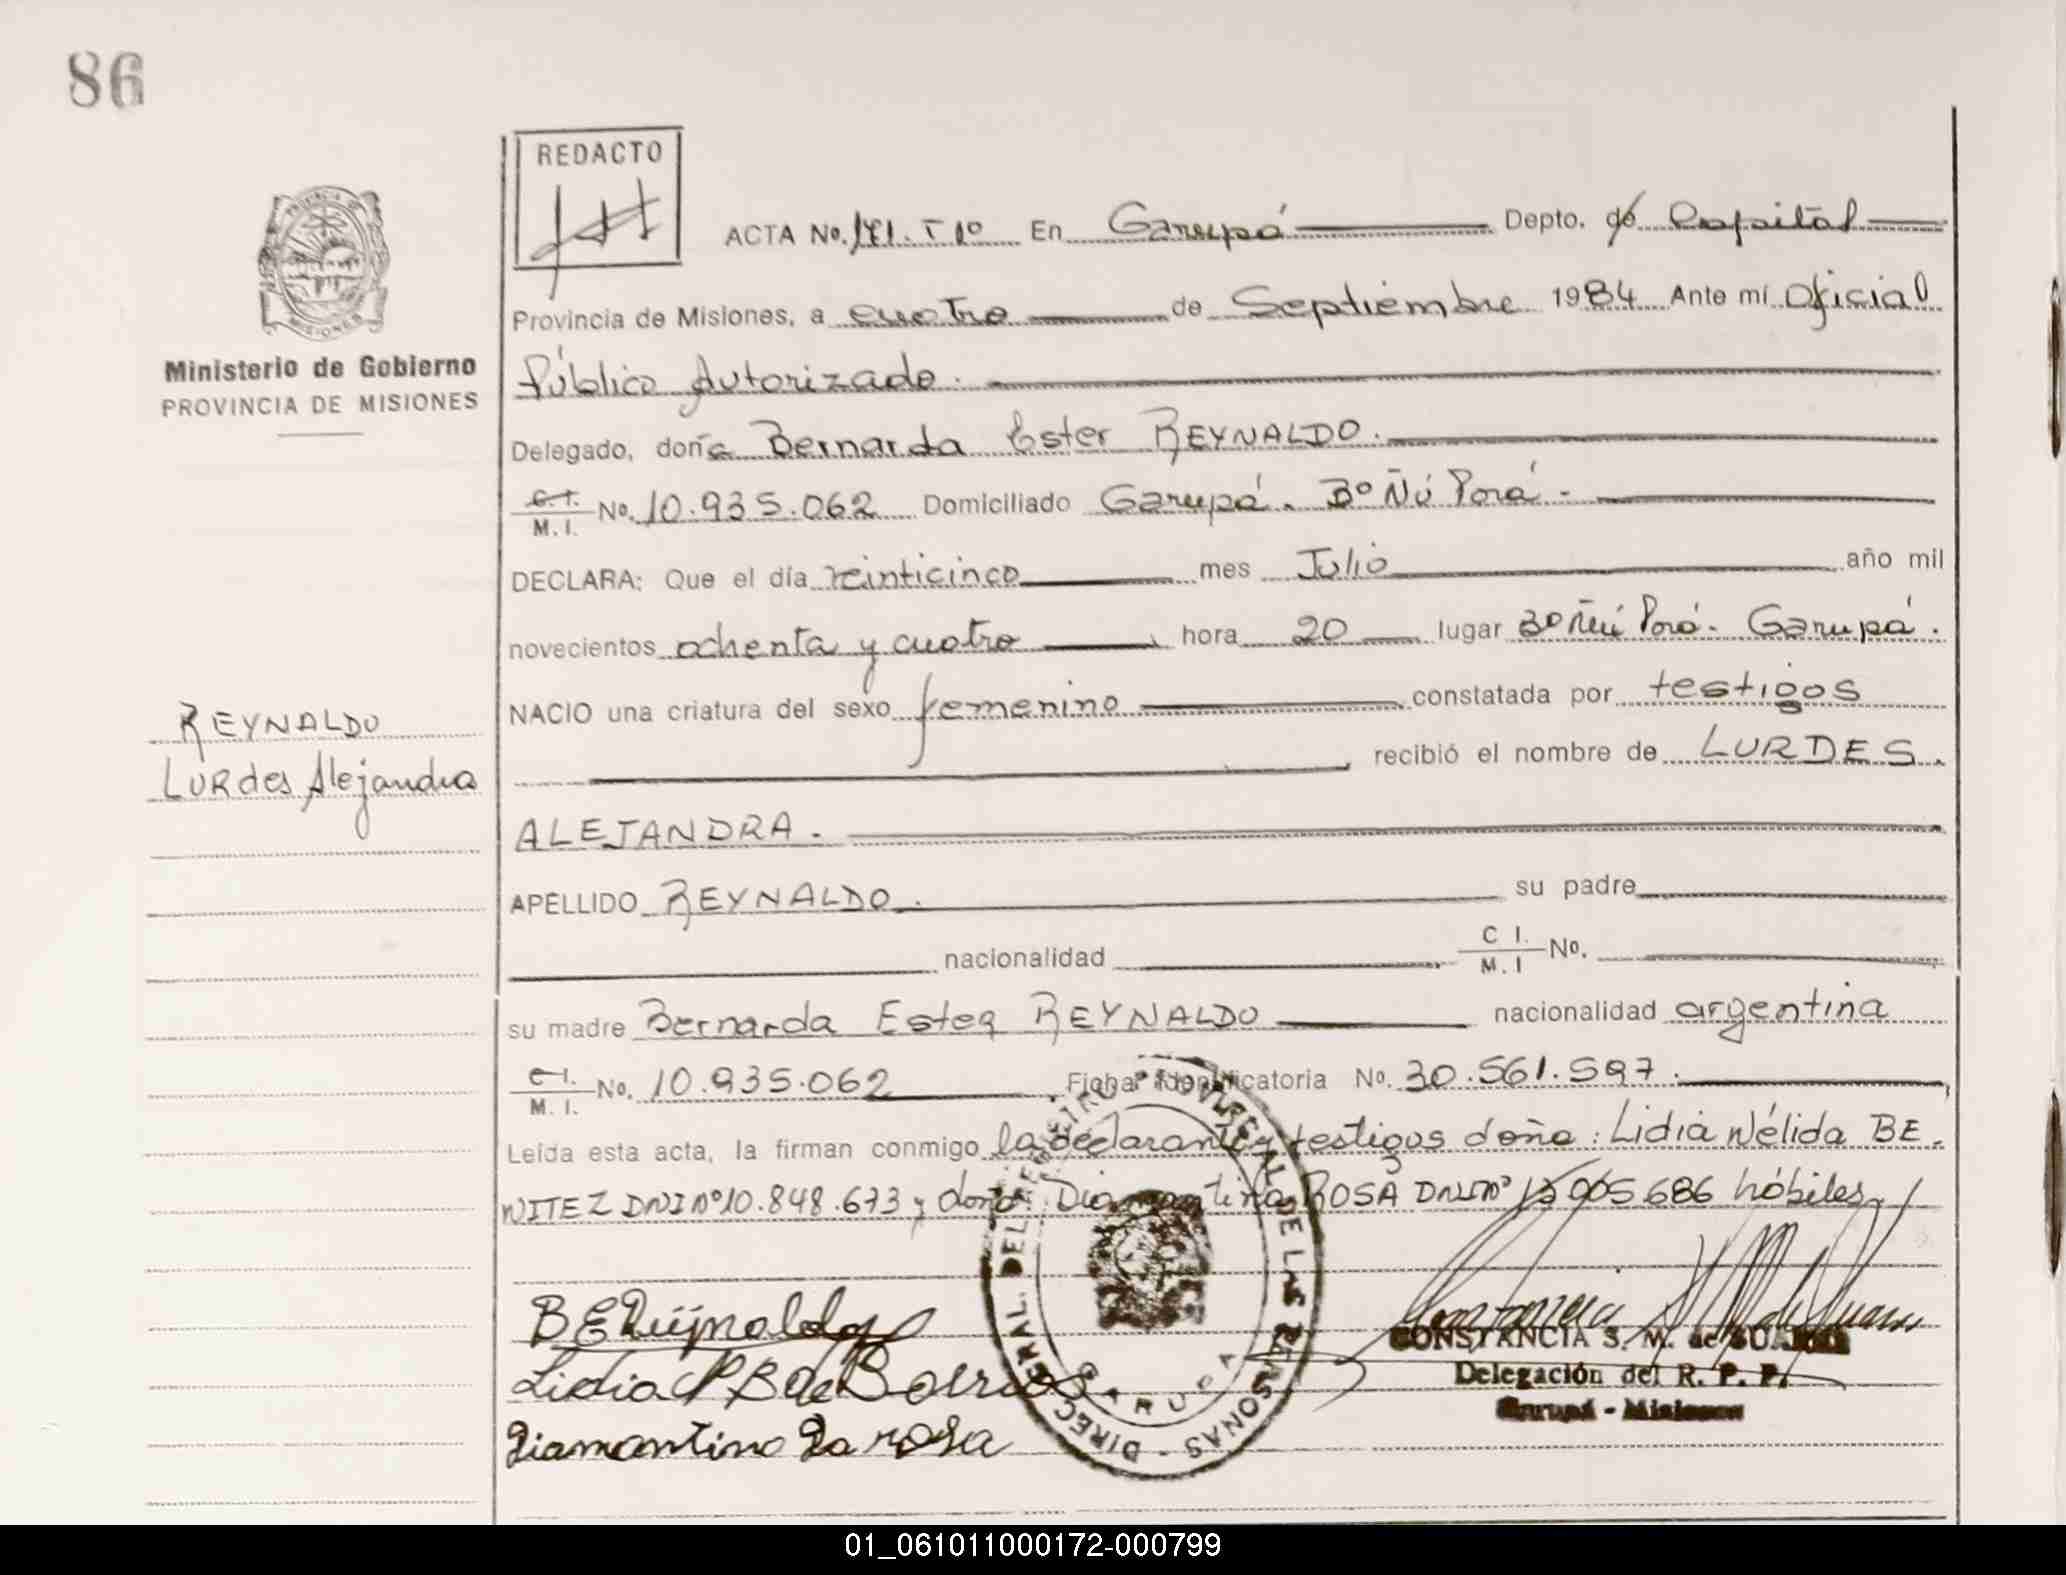 86
REDACTO
ACTA No. 171. T 1º En Garupá Depto. de Capital
Provincia de Misiones, a cuatro de Septiembre 1984 Ante mí Oficial
Ministerio de Gobierno
PROVINCIA DE MISIONES
Público Autorizado.
Delegado, doña Bernarda Ester REYNALDO.
C.I. / M.I. No. 10.935.062 Domiciliado Garupá. Bº Ñú Porá -
DECLARA: Que el día veinticinco mes Julio año mil
novecientos ochenta y cuatro hora 20 lugar Bº Ñú Porá. Garupá.
NACIO una criatura del sexo femenino constatada por testigos
REYNALDO
Lurdes Alejandra
recibió el nombre de LURDES
ALEJANDRA.
APELLIDO REYNALDO. su padre
nacionalidad C I. / M. I No.
su madre Bernarda Ester REYNALDO nacionalidad argentina
C.I. / M. I. No. 10.935.062 Ficha Identificatoria No. 30.561.597.
Leída esta acta, la firman conmigo la declarante y testigos doña: Lidia Nélida BE
NITEZ DNI Nº 10.848.673 y doña: Diamantina ROSA DNI Nº 905.686 hábiles
PROVINCIA DE MISIONES
DIREC. GRAL. DEL REGISTRO PROVINCIAL DE LAS PERSONAS
GARUPA
B E Reijnaldo
Lidia N B de
Diamantino Da rosa
CONSTANCIA S. M. de
Delegación del R. P. P.
Garupá - Misiones
01_061011000172-000799